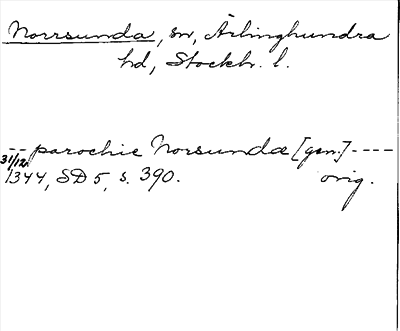 Norrsunda, sn, Ärlinghundra
hd, Stockh. l.
-- parochie Norsundæ [gen.] ----
31/12 1344, SD 5, s. 390. orig.